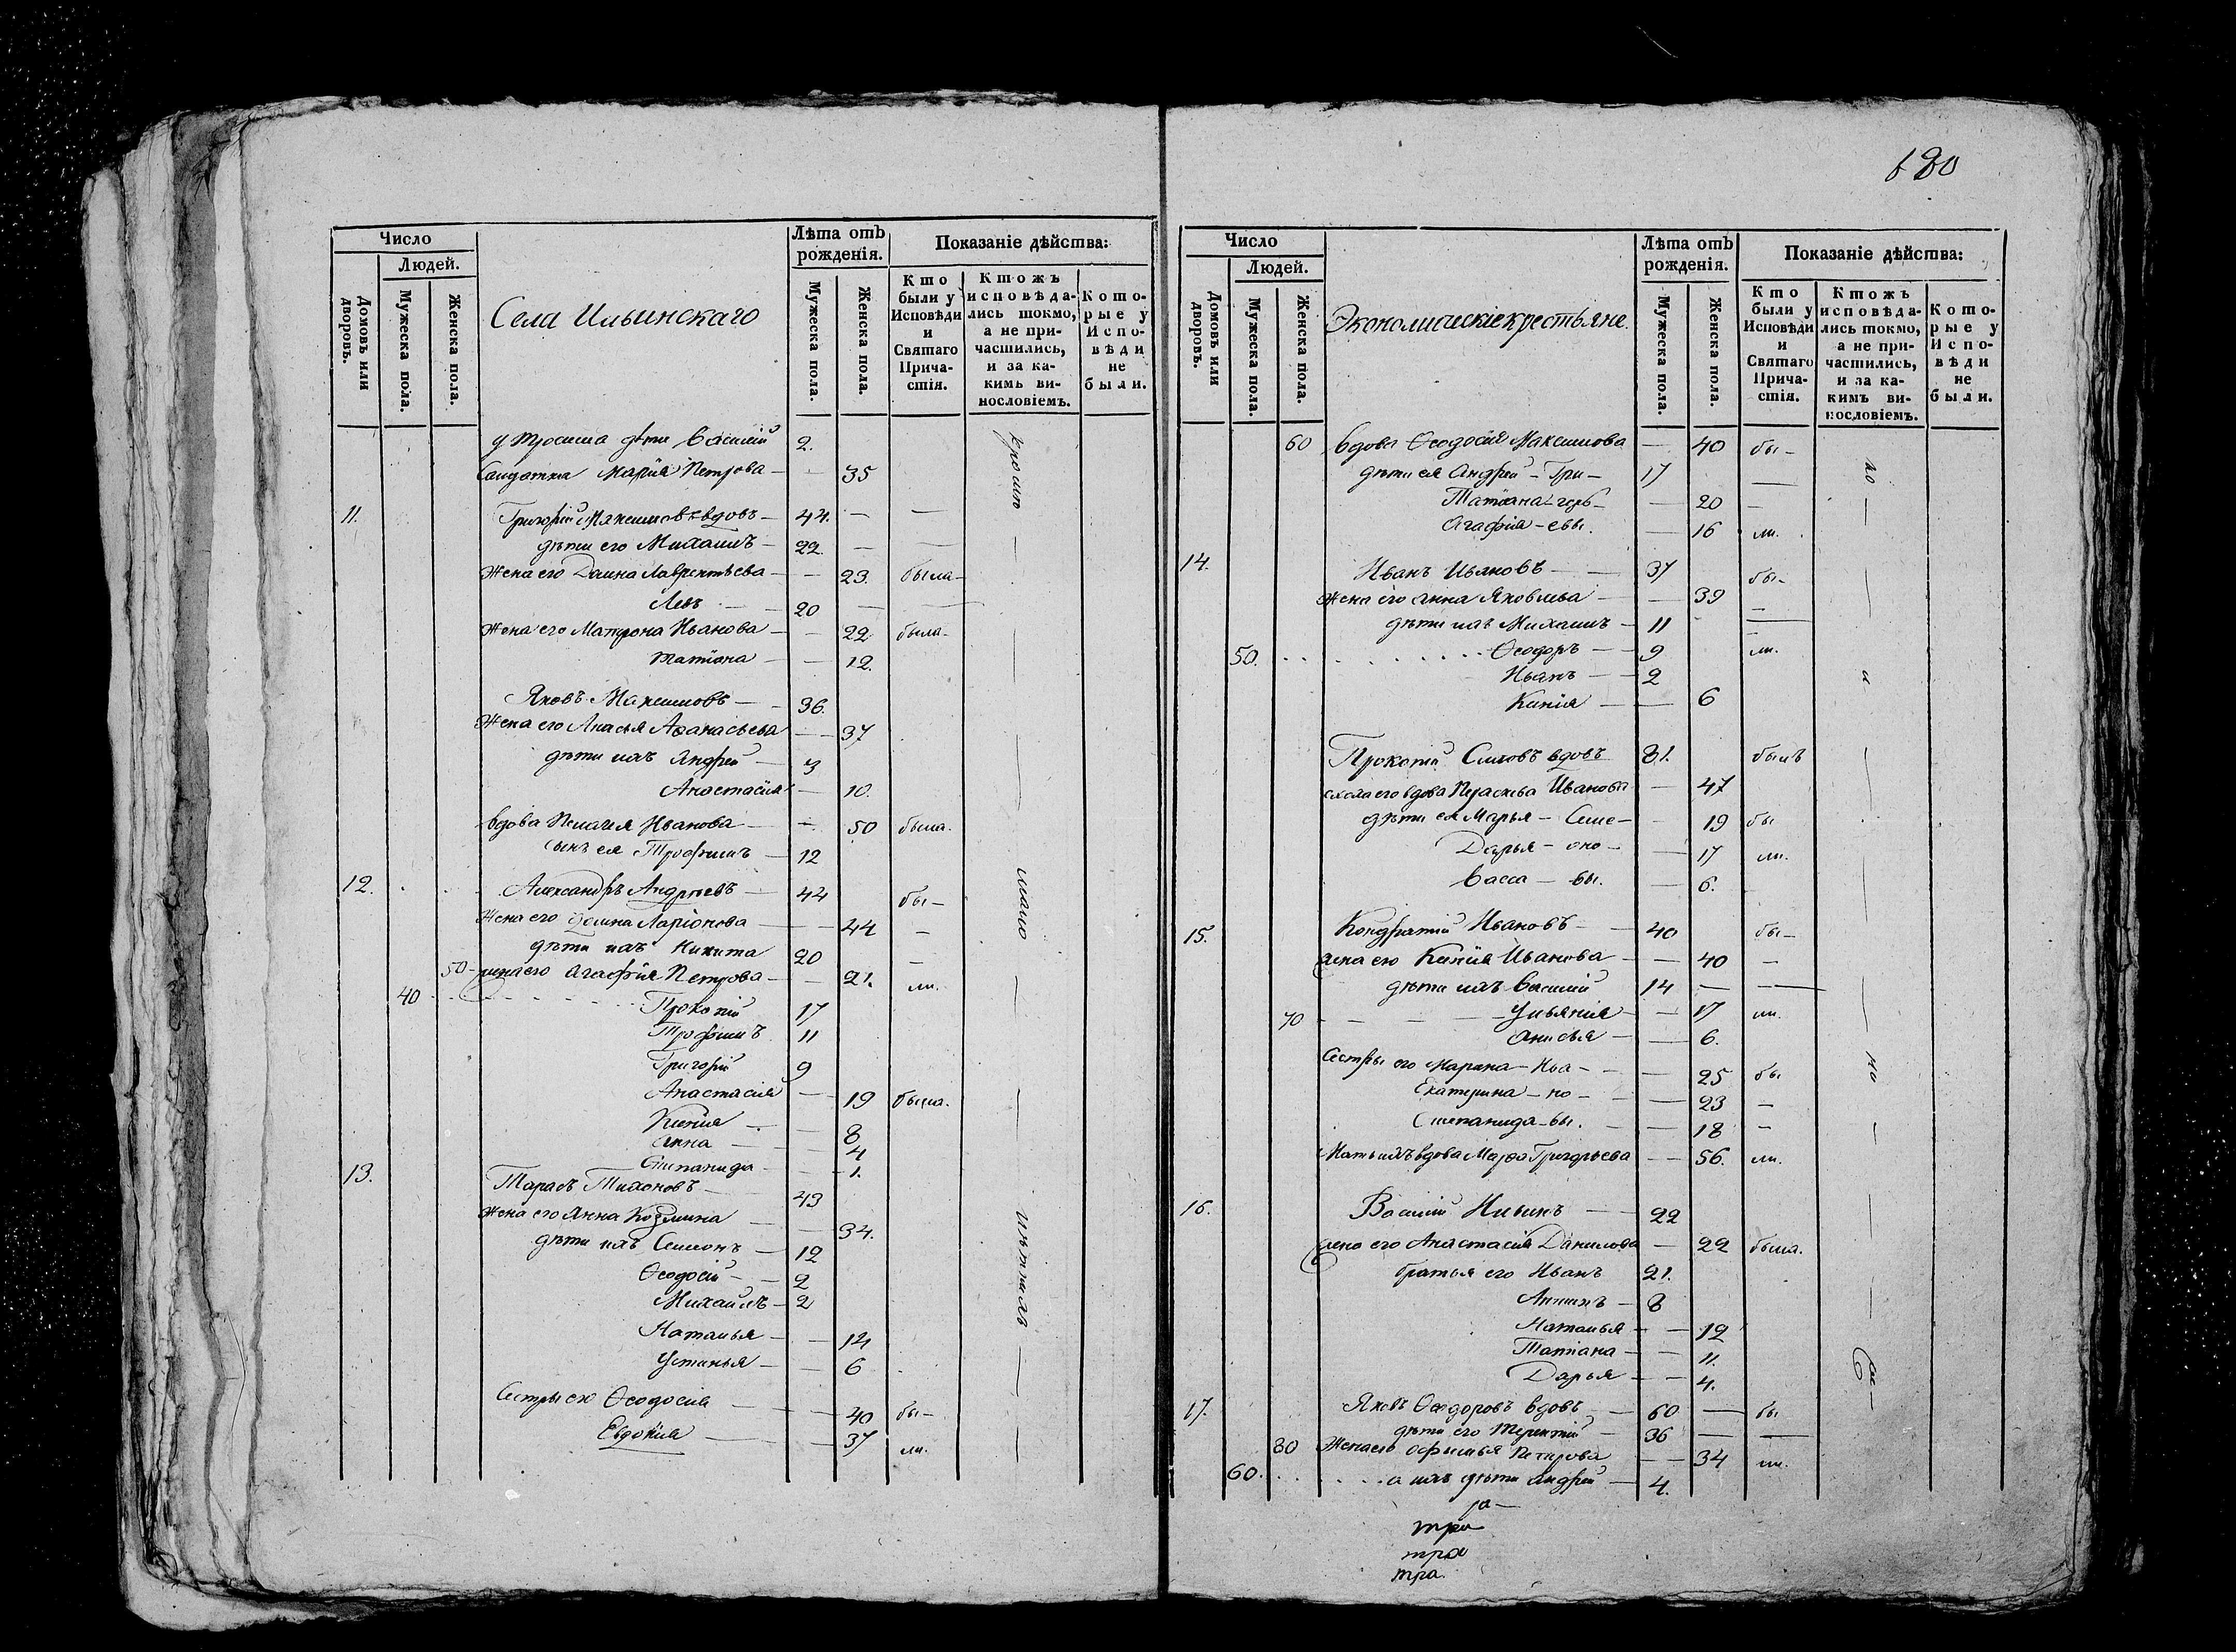 680
Число
Людей.
Домовъ или дворовъ.
Мужеска пола.
Женска пола.
Села Ильинскаго
Лѣта отъ рожденія.
Мужеска пола.
Женска пола.
Показаніе дѣйства:
Кто были у Исповѣди и Святаго Причастія.
Ктожъ исповѣдались токмо, а не причастились, и за какимъ винословіемъ.
Которые у Исповѣди не были.
дѣти Василій 2.
Салдатка Марія Петрова — 35
11. Григорій Максимовъ вдовъ — 44. — —
дѣти его Михаилъ — 22. — —
Жена его Домна Лаврентьева — 23. была —
Левъ — 20 — —
Жена его Матрона Иванова — 22 была —
Татіана — 12.
Яковъ Максимовъ — 36.
Жена его Анасья Аѳанасьева — 37
дѣти ихъ Андрей — 3
Анастасія — 10.
вдова Пелагея Иванова — 50 была.
сынъ ея Трофимъ — 12
12. Александръ Андреевъ — 44 бы —
Жена его Домна Ларіонова — 44 —
дѣти ихъ Никита 20 —
50 — жена его Агафія Петрова — 21. ли.
40 Прокопій 17
Трофимъ 11
Григорій 9
Анастасія — 19 была.
Ксенія — 8
Анна — 4
Степанида — 1.
13. Тарасъ Тихоновъ — 43
Жена его Анна Козмина — 34.
дѣти ихъ Семіонъ — 12
Ѳеодосій — 2
Михаилъ — 2
Наталья — 14
Устинья — 6
Сестры его Ѳеодосія — 40 бы —
Евдокія — 37 ли.
Число
Людей.
Домовъ или дворовъ.
Мужеска пола.
Женска пола.
Экономическіе крестьяне.
Лѣта отъ рожденія.
Мужеска пола.
Женска пола.
Показаніе дѣйства:
Кто были у Исповѣди и Святаго Причастія.
Ктожъ исповѣдались токмо, а не причастились, и за какимъ винословіемъ.
Которые у Исповѣди не были.
60 вдова Ѳеодосія Максимова — 40 бы —
дѣти ея Андрей — Гри — 17 —
Татіана — 20 —
Агафія — евы. — 16 ли.
14. Иванъ Ивановъ — 37 бы —
Жена его Анна Яковлева — 39 —
дѣти ихъ Михаилъ — 11 —
50. Ѳеодоръ — 9 ли.
Иванъ — 2
Ксенія — 6
Прокопій вдовъ 81. былъ
сноха его вдова Параскева Иванова — 47
дѣти ея Марья — Симе — 19 бы
Дарья — оно — 17 ли.
Васса — вы. — 6.
15. Кондратій Ивановъ — 40 бы —
жена его Ксенія Иванова — 40 —
дѣти ихъ Василій 14 — —
70 Ульянія — 17 ли.
Анисья — 6.
Сестры его Марина — Ива — 25 бы
Екатерина — но — 23 —
Степанида — вы. — 18 —
Мать ихъ вдова Марѳа Григорьева — 56. ли.
16. Василій Ильинъ — 22
жена его Анастасія Данилова — 22 была.
братья его Иванъ 21.
— 8
Наталья — 12
Татіана — 11.
Дарья — 4.
17. Яковъ Ѳеодоровъ вдовъ — 60 — бы
дѣти его Терентій — 36 — —
80 Жена его Офимья Петрова — 34 ли.
60. а ихъ дѣти Андрей — 4.